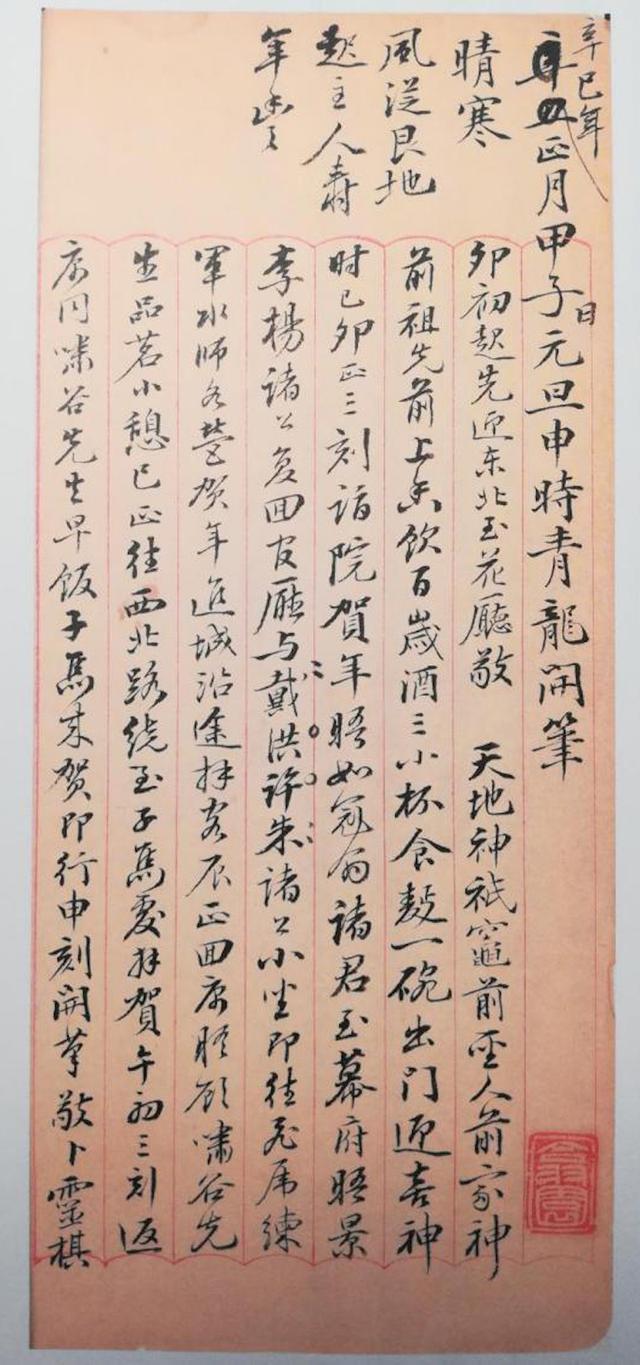 辛巳年
正月甲子日元旦申時青龍開筆
晴寒
風從艮地
起主人壽
年豐
卯初起先迎东北至花廳敬 天地神祇竈前聖人前家神
前祖先前上香飲百歲酒三小杯食麪一碗出門迎喜神
时已卯正三刻詣院賀年晤如冠翁諸君至幕府晤景
李楊諸公复回官廳与戴洪許朱諸公小坐即往飞虎練
軍水師各营贺年進城沿途拜客辰正回寓晤顾嘯谷先
生品茗小憩巳正往西北路绕至子雋处拜賀午初三刻返
寓同嘯谷先生早饭子雋来贺即行申刻開筆敬卜靈棋